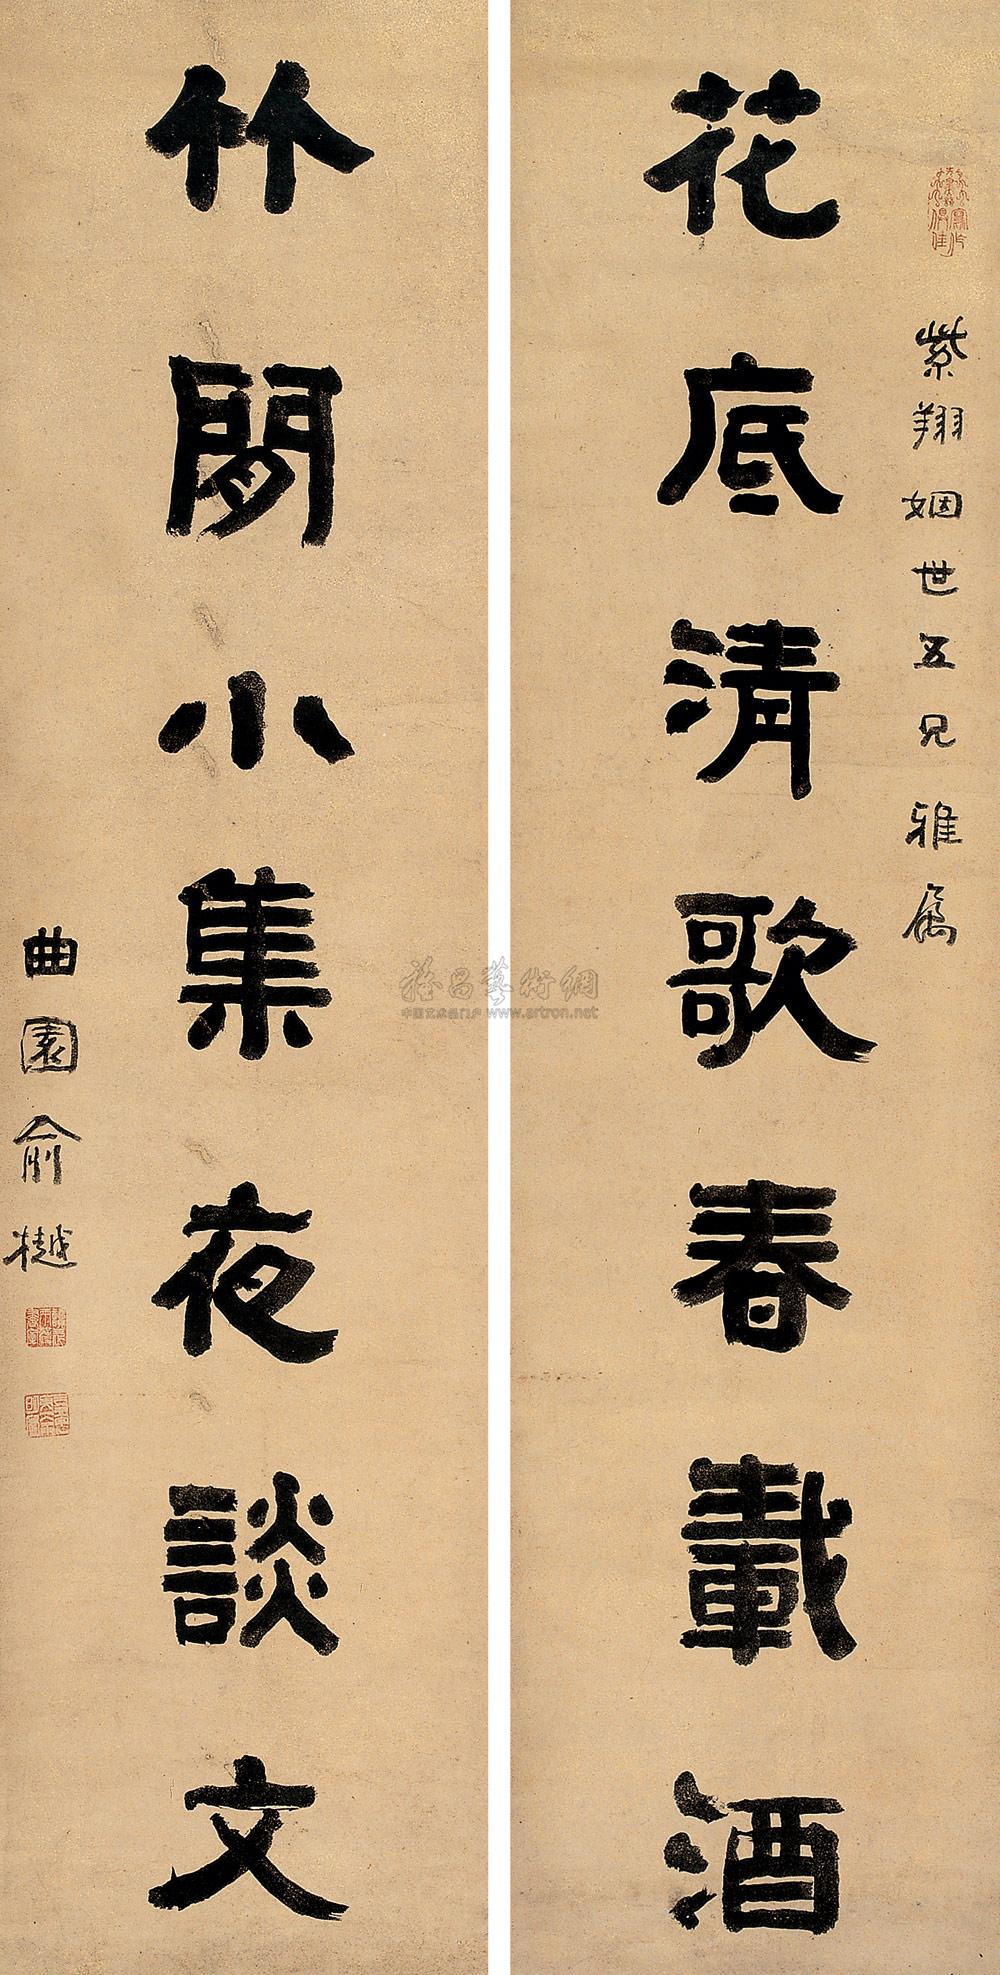 花底清歌春載酒
紫翔姻世五兄雅属
竹間小集夜談文
曲園俞樾
中国艺术品门户 www.artron.net